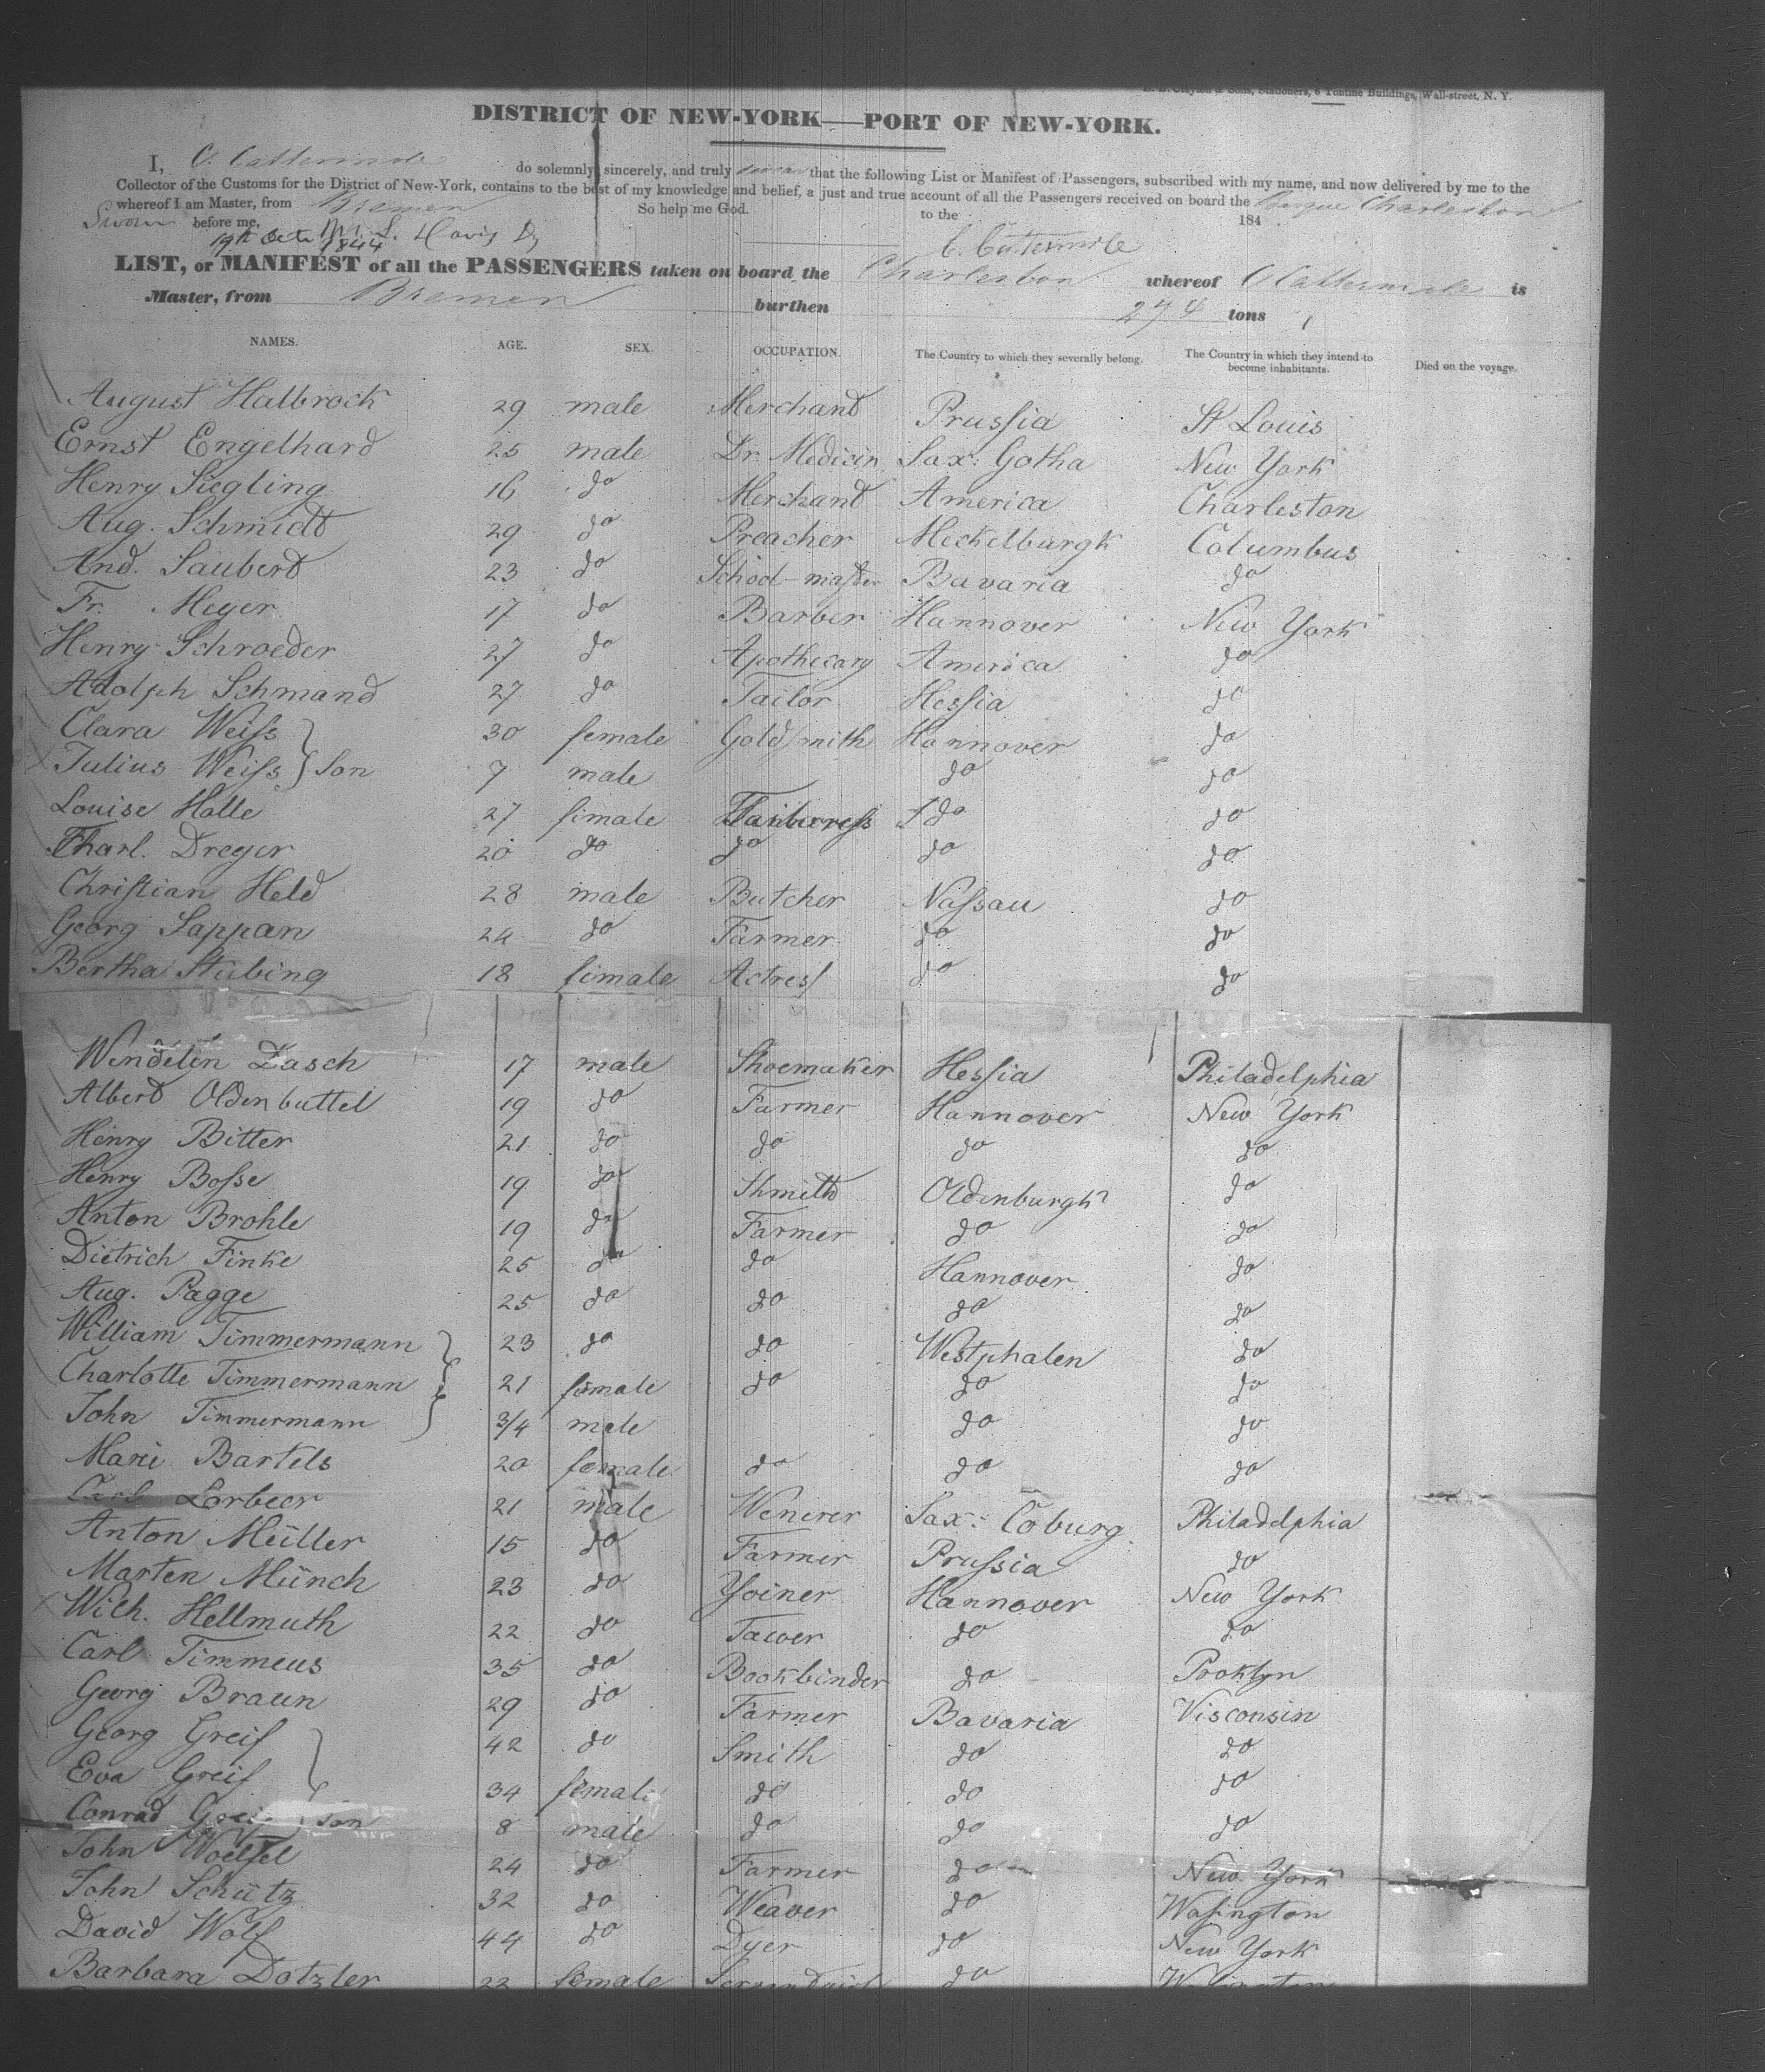 & Sons, Stationers, 6 Tontine Buildings, Wall-street, N. Y.
DISTRICT OF NEW-YORK—PORT OF NEW-YORK.
I, C. Cattermole do solemnly, sincerely, and truly swear that the following List or Manifest of Passengers, subscribed with my name, and now delivered by me to the
Collector of the Customs for the District of New-York, contains to the best of my knowledge and belief, a just and true account of all the Passengers received on board the Barque Charleston
whereof I am Master, from Bremen So help me God. to the 184
Sworn before me,
19th Octr 1844 M. L. Davis C. Cattermole
LIST, or MANIFEST of all the PASSENGERS taken on board the Charleston whereof C Cattermole is
Master, from Bremen burthen 274 tons
NAMES. AGE. SEX. OCCUPATION. The Country to which they severally belong. The Country in which they intend to become inhabitants. Died on the voyage.
August Halbrock 29 male Merchand Prussia St Louis
Ernst Engelhard 25 male Dr. Medicin Sax: Gotha New York
Henry Siegling 16 do Merchand America Charleston
Aug. Schmidt 29 do Preacher Meckelburgh Columbus
And. Saubert 23 do School-master Bavaria do
Fr. Meyer 17 do Barber Hannover New York
Henry Schroeder 27 do Apothecary America do
Adolph Schmand 27 do Tailor Hessia do
Clara Weiss 30 female Goldsmith Hannover do
Julius Weiss } Son 7 male do do
Louise Holle 27 female do do
Charl. Dreyer 20 do do do do
Christian Held 28 male Butcher Nassau do
Georg Sappan 24 do Farmer do do
Bertha Stübing 18 female Actress do do
Wendelin Zasch 17 male Shoemaker Hessia Philadelphia
Albert Oldenbuttel 19 do Farmer Hannover New York
Henry Bitter 21 do do do do
Henry Bosse 19 do Shmith Oldenburgh do
Anton Brohle 19 do Farmer do do
Dietrich Finke 25 do do Hannover do
Aug. Pagge 25 do do do do
William Timmermann 23 do do Westphalen do
Charlotte Timmermann 21 female do do do
John Timmermann 3/4 male do do
Marie Bartels 20 female do do do
Carl Lorbeer 21 male Wenerer Sax: Coburg Philadelphia
Anton Müller 15 do Farmer Prussia do
Marten Münch 23 do Yoiner Hannover New York
Wilh. Hellmuth 22 do Tawer do do
Carl Timmeus 35 do Bookbinder do Proklyn
Georg Braun 29 do Farmer Bavaria Visconsin
Georg Greif 42 do Smith do do
Eva Greif 34 female do do do
Conrad Greif } son 8 male do do do
John Woelfel 24 do Farmer do New York
John Schütz 32 do Weaver do Wasington
David Wolf 44 do Dyer do New York
Barbara Dotzler 22 female do